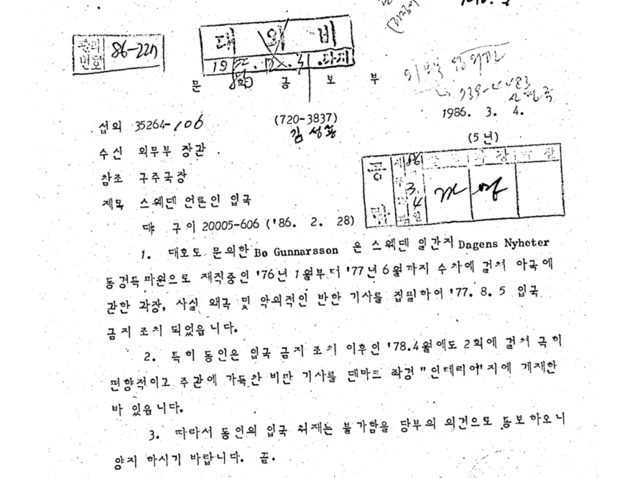 분류번호 86-227
대 외 비
19 . 12. 31. 까지
문 화 공 보 부
섭외 35264-106 (720-3837) 1986. 3. 4.
수신 외무부 장관 (5년)
참조 구주국장
제목 스웨덴 언론인 입국
대 구이 20005-606 ('86. 2. 28)
1. 대호로 문의한 Bo Gunnarsson 은 스웨덴 일간지 Dagens Nyheter
동경특파원으로 재직중인 '76년 1월부터 '77년 6월까지 수차에 걸쳐 아국에
관한 과장, 사실 왜곡 및 악의적인 반한 기사를 집필하여 '77. 8. 5 입국
금지 조치 되었읍니다.
2. 특히 동인은 입국 금지 조치 이후인 '78.4월에도 2회에 걸쳐 극히
편향적이고 주관에 가득찬 비판 기사를 덴마크 "인데리어"지에 게재한
바 있읍니다.
3. 따라서 동인의 입국 취재는 불가함을 당부의 의견으로 통보 하오니
양지 하시기 바랍니다. 끝.